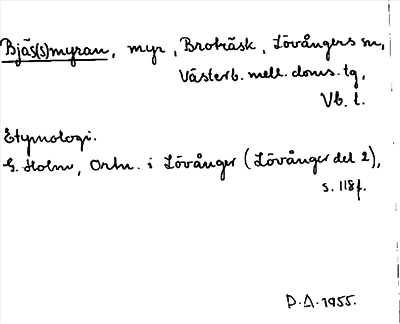 Bjäs(s)myran, myr, Broträsk, Lövångers sn,
Västerb. mell. doms. tg,
Vb. l.
Etymologi.
G. Holm, Ortn. i Lövånger (Lövånger del 2),
s. 118f.
D.A. 1955.